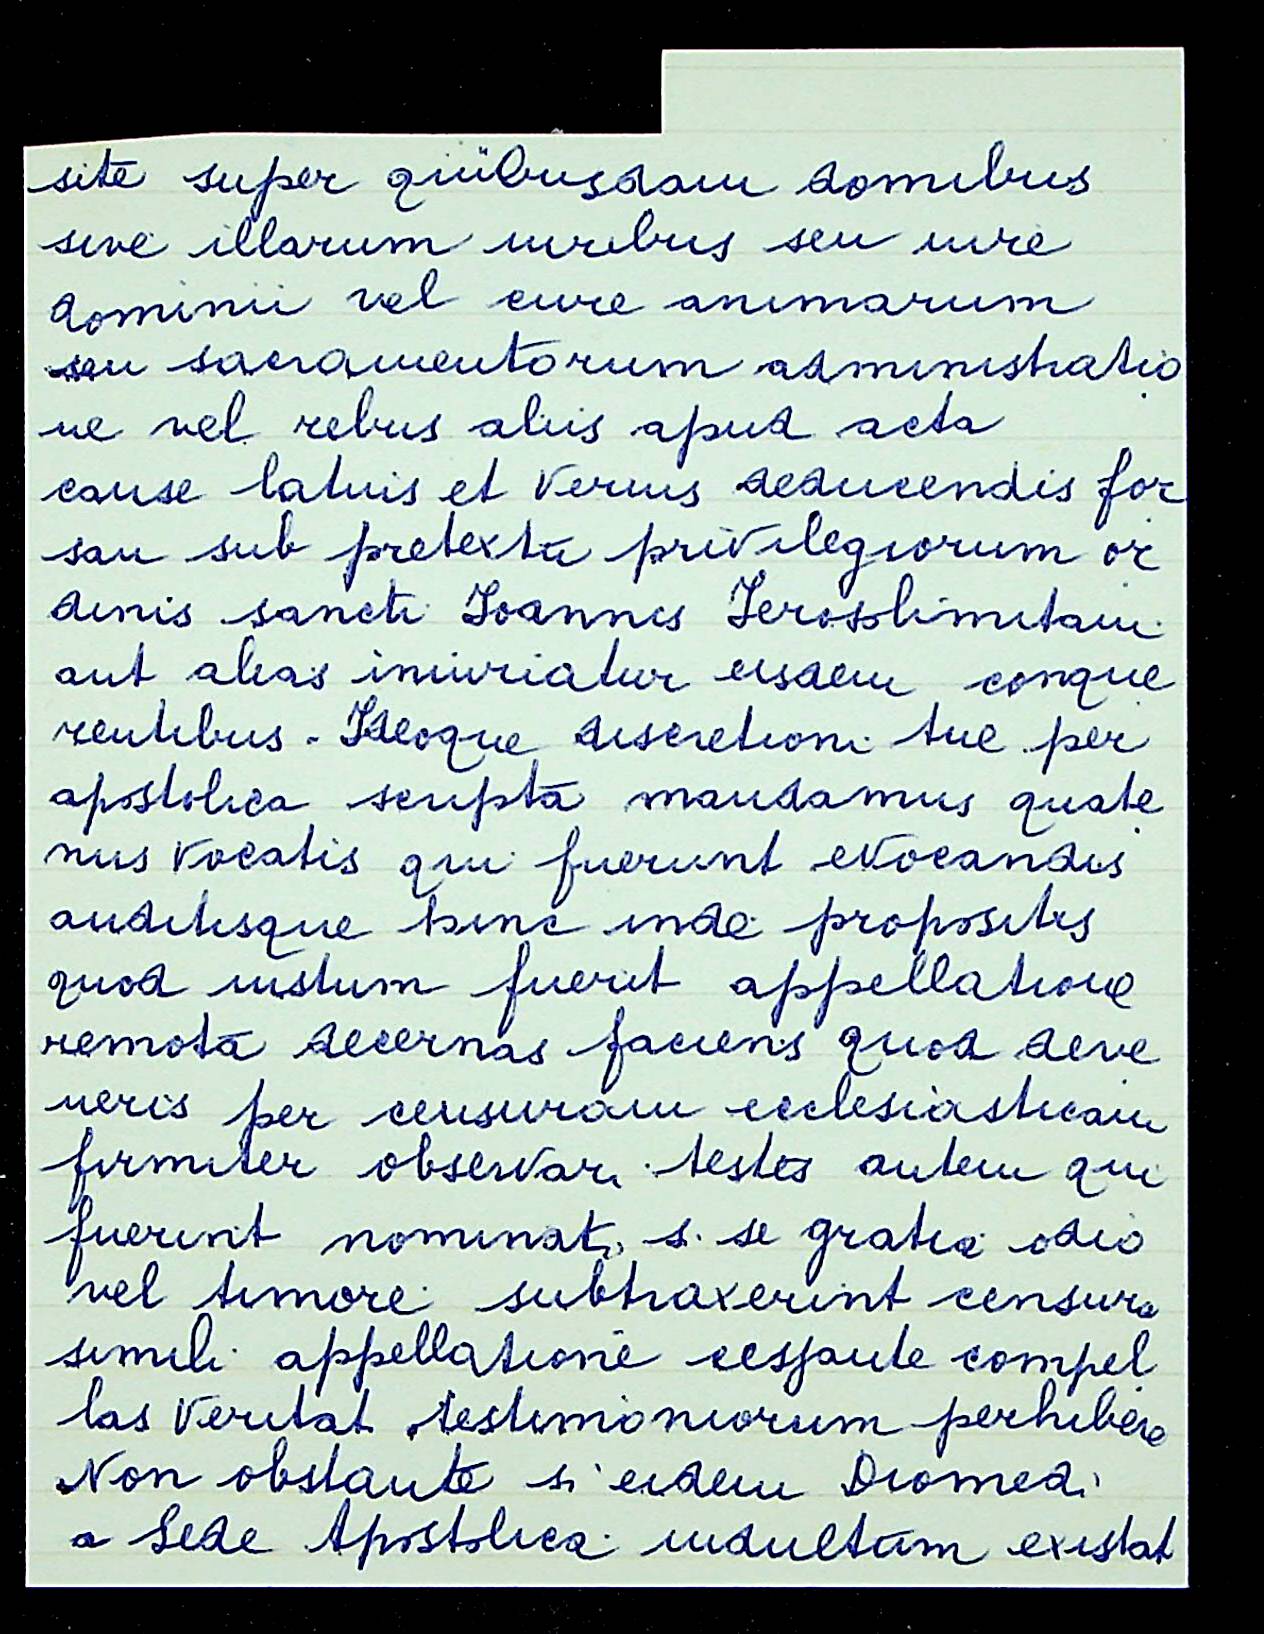 site super quibusdam domibus
sive illarum iuribus seu iure
dominii vel cure animarum
seu sacramentorum administratio
ne vel rebus aliis apud acta
cause latius et verius deducendis for
san sub pretextu privilegiorum or
dinis sancti Ioannis Ierosolimitani
aut alias iniuriatur eisdem conque
rentibus. Ideoque discretioni tue per
apostolica scripta mandamus quate
nus vocatis qui fuerunt evocandis
auditisque hinc inde propositis
quod iustum fuerit appellatione
remota decernas faciens quod decre
veris per censuram ecclesiasticam
firmiter observari. testes autem qui
fuerint nominati, si se gratia odio
vel timore subtraxerint censura
simili appellatione cessante compel
las veritati testimoniorum perhibere
Non obstante si eidem Diomedi
a Sede Apostolica indultum existat